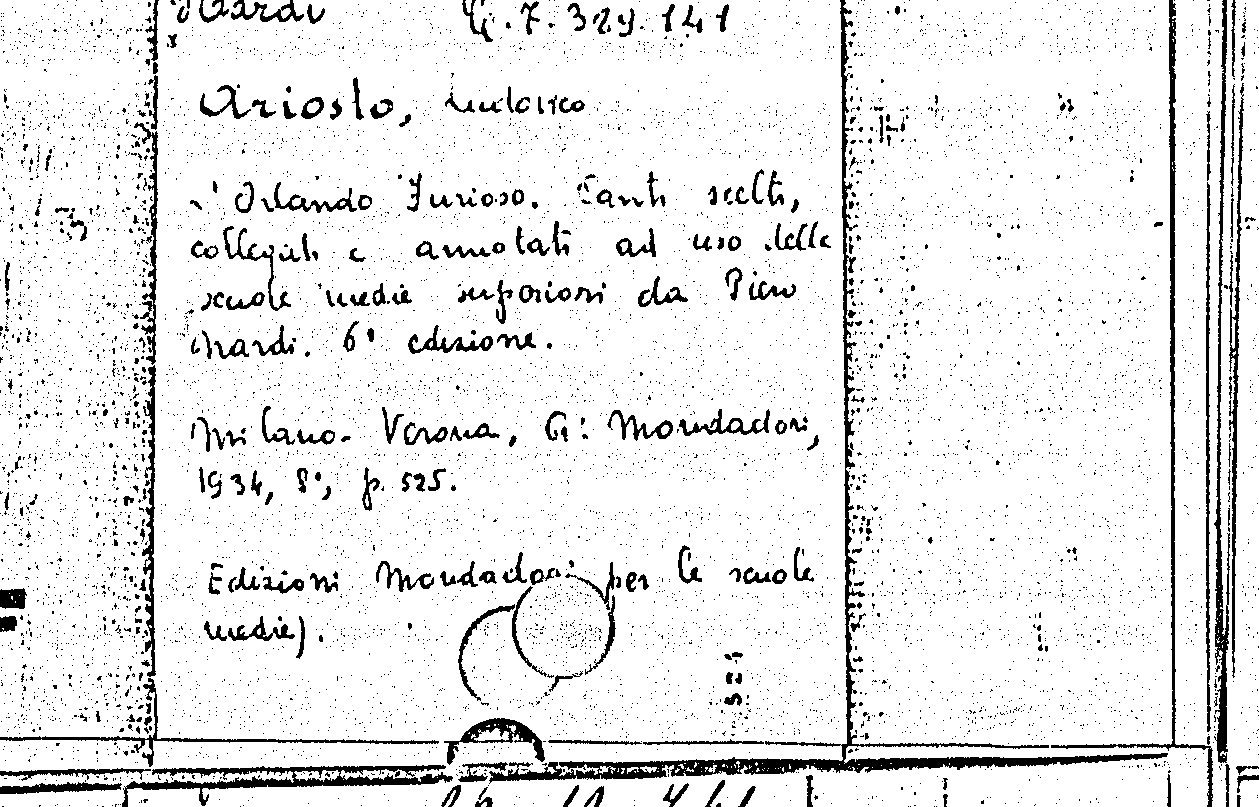 Nardi
Ariosto, Ludovico
L'Orlando Furioso. Canti scelti,
collegati e annotati ad uso delle
scuole medie superiori da Piero
Nardi. 6ª edizione.
Milano-Verona, A. Mondadori,
1934, 8°, p. 525.
Edizioni Mondadori per le scuole
medie).
521